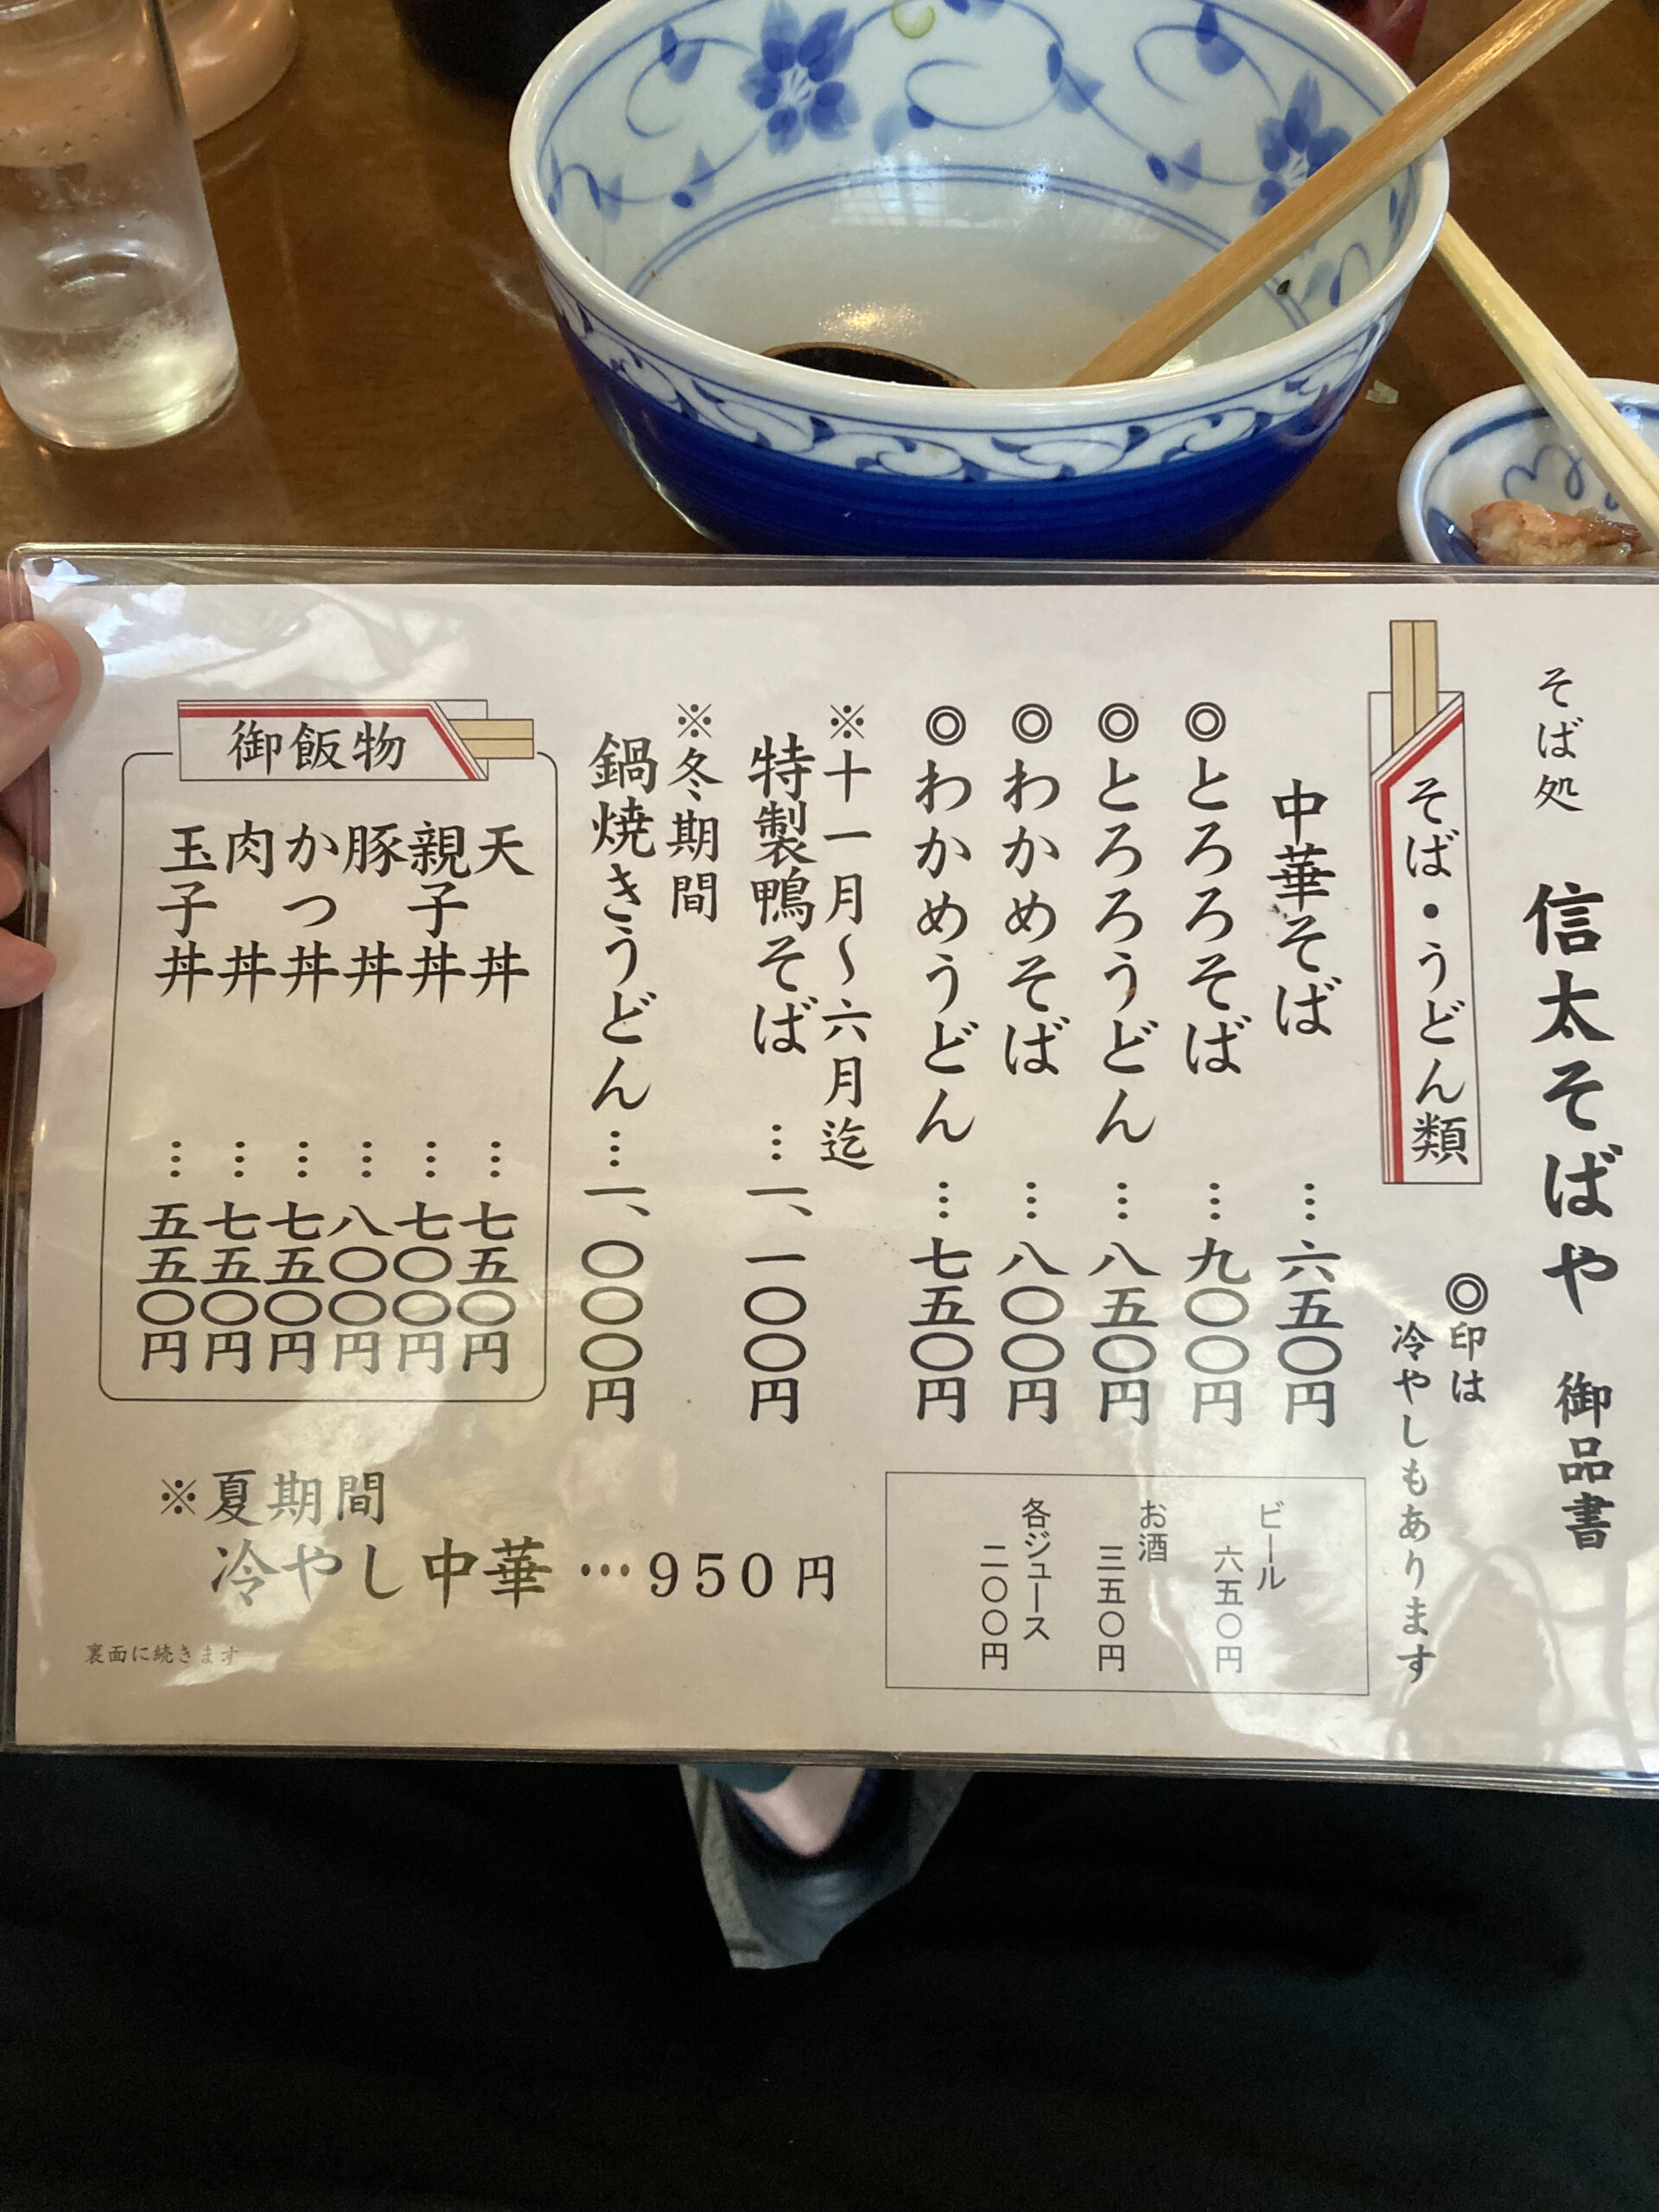 そば処 信太そばや 御品書
◎印は
冷やしもあります
そば・うどん類
中華そば …六五〇円
◎とろろそば …九〇〇円
◎とろろうどん …八五〇円
◎わかめそば …八〇〇円
◎わかめうどん …七五〇円
※十一月～六月迄
特製鴨そば …一、一〇〇円
※冬期間
鍋焼きうどん…一、〇〇〇円
御飯物
天丼 …七五〇円
親子丼 …七〇〇円
豚丼 …八〇〇円
かつ丼 …七五〇円
肉丼 …七五〇円
玉子丼 …五五〇円
ビール
六五〇円
お酒
三五〇円
各ジュース
二〇〇円
※夏期間
冷やし中華…950円
裏面に続きます